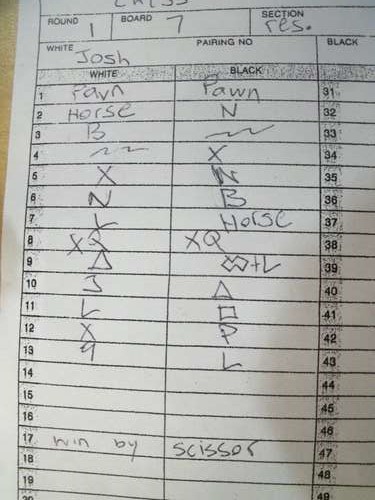 CHESS
ROUND 1 BOARD 7 SECTION res.
WHITE Josh PAIRING NO BLACK
WHITE BLACK
1 Pawn Pawn 31
2 Horse N 32
3 B 33
4 X 34
5 X N 35
6 N B 36
7 L Horse 37
8 XQ XQ 38
9 Δ +L 39
10 3 Δ 40
11 L □ 41
12 X P 42
13 9 L 43
14 44
15 45
16 46
17 win by scissor 47
18 48
19 49
20